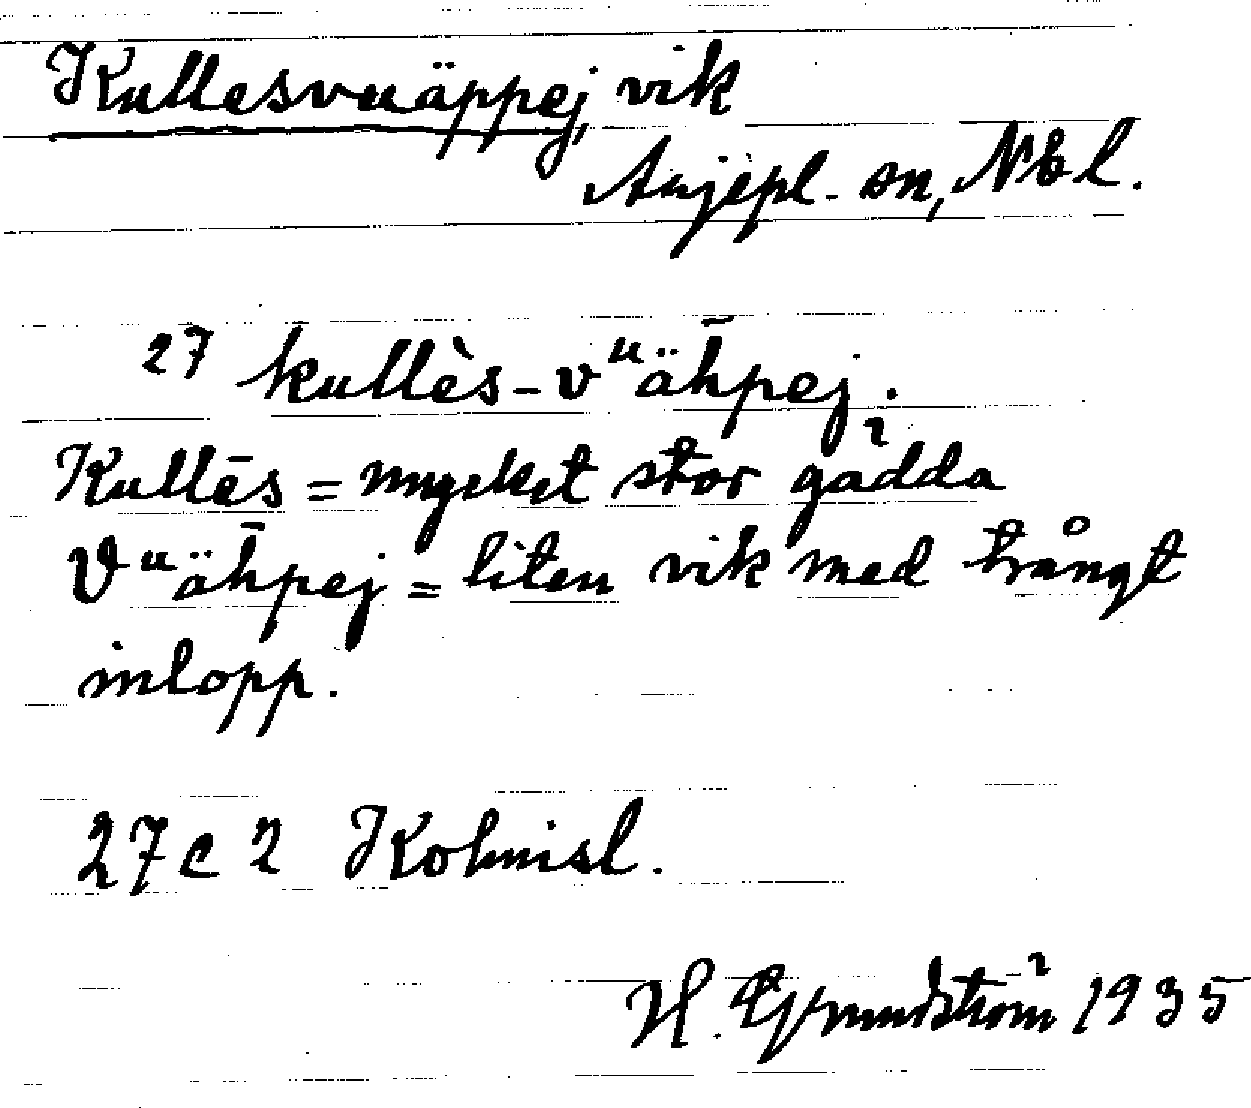 Kullesvuäppej, vik
Arjepl. sn, Nbl.
27 kullès-vᵘäh̄pej.
Kullēs = mycket stor gädda
Vᵘäh̄pej = liten vik med trångt
inlopp.
27 c 2 Kolmisl.
H. Grundström 1935